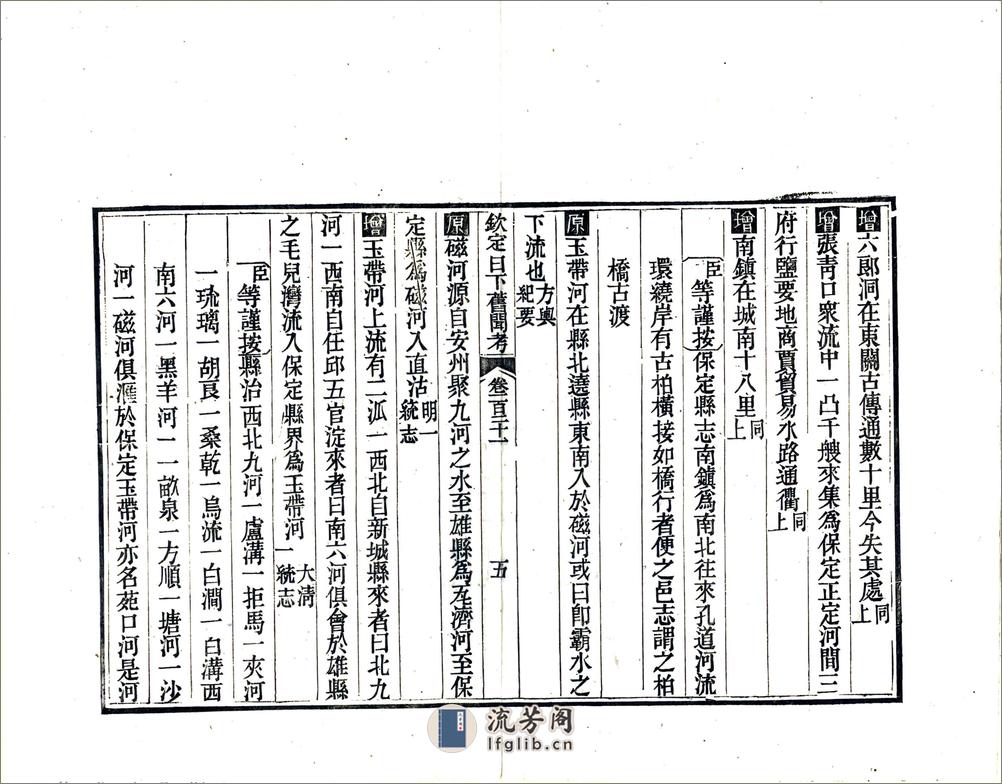 增六郎洞在東關古傳通數十里今失其處同上
增張靑口衆流中一凸千艘來集爲保定正定河間三
府行鹽要地商賈貿易水路通衢同上
增南鎮在城南十八里同上
臣等謹按保定縣志南鎮爲南北往來孔道河流
環繞岸有古柏橫接如橋行者便之邑志謂之柏
橋古渡
原玉帶河在縣北遶縣東南入於磁河或曰卽霸水之
下流也方輿紀要
欽定日下舊聞考 卷一百二十一 五
原磁河源自安州聚九河之水至雄縣爲瓦濟河至保
定縣爲磁河入直沽明一統志
增玉帶河上流有二派一西北自新城縣來者曰北九
河一西南自任邱五官淀來者曰南六河俱會於雄縣
之毛兒灣流入保定縣界爲玉帶河大淸一統志
臣等謹按縣治西北九河一盧溝一拒馬一夾河
一琉璃一胡良一桑乾一烏流一白澗一白溝西
南六河一黑羊河一一畝泉一方順一塘河一沙
河一磁河俱滙於保定玉帶河亦名苑口河是河
流芳阁
lfglib.cn